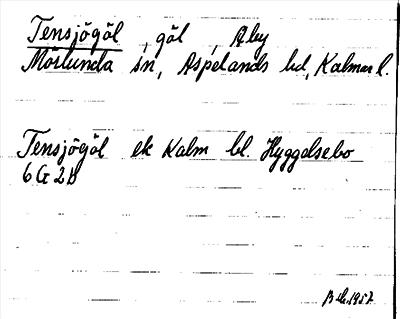 Tensjögöl, göl, Åby
Mörlunda sn, Aspelands hd, Kalmar l.
Tensjögöl ek Kalm bl. Hyggelsebo
6G 2b
1957